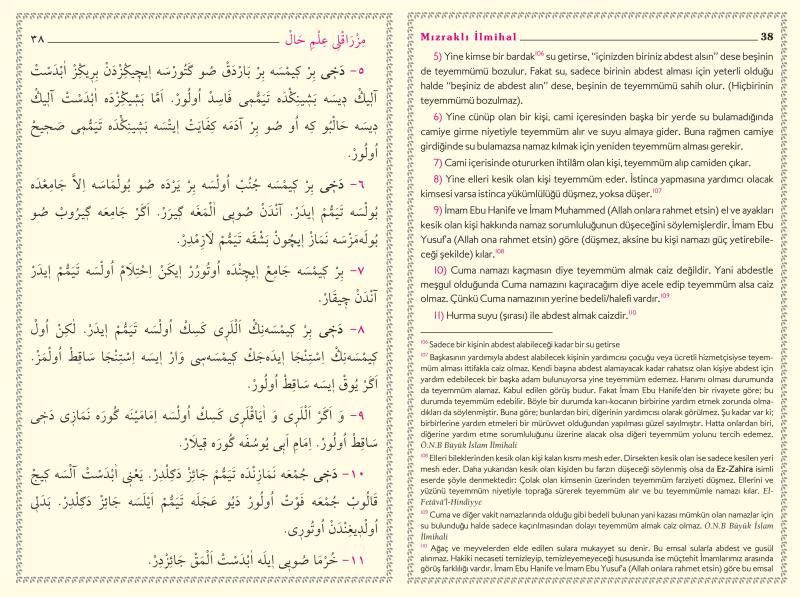 مِزْرَاقْلِى عِلْمِ حَالْ ٣٨
٥- دَخٖى بِرْ كِيمْسَه بِرْ بَارْدَقْ صُو كَتُورْسَه اِيچِيكِزْدَنْ بِرِيكِزْ اَبْدَسْتْ
آلِيكْ دِيسَه بَشِينِكْدَه تَيَمُّمِى فَاسِدْ اُولُورْ. اَمَّا بَشِيكِزْدَه اَبْدَسْتْ آلِيكْ
دِيسَه حَالْبُو كِه اُو صُو بِرْ آدَمَه كِفَايَتْ اِيتْسَه بَشِينِكْدَه تَيَمُّمِى صَحِيحْ
اُولُورْ.
٦- دَخٖى بِرْ كِيمْسَه جُنُبْ اُولْسَه بِرْ يَرْدَه صُو بُولْمَاسَه اِلاَّ جَامِعْدَه
بُولْسَه تَيَمُّمْ اِيدَرْ. آنْدَنْ صُويِى اَلْمَغَه گِيرَرْ. اَكَرْ جَامِعَه گِيرُوبْ صُو
بُولَمَزْسَه نَمَازْ اِيچُونْ بَشْقَه تَيَمُّمْ لاَزِمْدِرْ.
٧- بِرْ كِيمْسَه جَامِعْ اِيچِنْدَه اُوتُورُرْ اِيكَنْ اِحْتِلَامْ اُولْسَه تَيَمُّمْ اِيدَرْ
آنْدَنْ چِيقَارْ.
٨- دَخٖى بِرْ كِيمْسَه‌نِكْ اَللَرِى كَسِكْ اُولْسَه تَيَمُّمْ اِيدَرْ. لَكِنْ اُولْ
كِيمْسَه‌نِكْ اِسْتِنْجَا اِيدَه‌جَكْ كِيمْسَه‌سِى وَارْ اِيسَه اِسْتِنْجَا سَاقِطْ اُولْمَزْ.
اَكَرْ يُوقْ اِيسَه سَاقِطْ اُولُورْ.
٩- وَ اَكَرْ اَللَرِى وَ اَيَاقْلَرِى كَسِكْ اُولْسَه اِمَامَيْنَه گُورَه نَمَازِى دَخٖى
سَاقِطْ اُولُورْ. اِمَامِ اَبِى يُوسُفَه گُورَه قِيلَارْ.
١٠- دَخٖى جُمْعَه نَمَازِنْدَه تَيَمُّمْ جَائِزْ دَكِلْدِرْ. يَعْنِى اَبْدَسْتْ آلْسَه كِيچْ
قَالُوبْ جُمْعَه فَوْتْ اُولُورْ دَيُو عَجَلَه تَيَمُّمْ اَيْلَسَه جَائِزْ دَكِلْدِرْ. بَدَلِى
اُولْدِيغِنْدَنْ اُوتُورِى.
١١- خُرْمَا صُويِى اِيلَه اَبْدَسْتْ اَلْمَقْ جَائِزْدِرْ.
Mızraklı İlmihal 38
5) Yine kimse bir bardak¹⁰⁶ su getirse, “içinizden biriniz abdest alsın” dese beşinin
de teyemmümü bozulur. Fakat su, sadece birinin abdest alması için yeterli olduğu
halde “beşiniz de abdest alın” dese, beşinin de teyemmümü sahih olur. (Hiçbirinin
teyemmümü bozulmaz).
6) Yine cünüp olan bir kişi, cami içerisinden başka bir yerde su bulamadığında
camiye girme niyetiyle teyemmüm alır ve suyu almaya gider. Buna rağmen camiye
girdiğinde su bulamazsa namaz kılmak için yeniden teyemmüm alması gerekir.
7) Cami içerisinde otururken ihtilâm olan kişi, teyemmüm alıp camiden çıkar.
8) Yine elleri kesik olan kişi teyemmüm eder. İstinca yapmasına yardımcı olacak
kimsesi varsa istinca yükümlülüğü düşmez, yoksa düşer.¹⁰⁷
9) İmam Ebu Hanife ve İmam Muhammed (Allah onlara rahmet etsin) el ve ayakları
kesik olan kişi hakkında namaz sorumluluğunun düşeceğini söylemişlerdir. İmam Ebu
Yusuf’a (Allah ona rahmet etsin) göre (düşmez, aksine bu kişi namazı güç yetirebile-
ceği şekilde) kılar.¹⁰⁸
10) Cuma namazı kaçmasın diye teyemmüm almak caiz değildir. Yani abdestle
meşgul olduğunda Cuma namazını kaçıracağım diye acele edip teyemmüm alsa caiz
olmaz. Çünkü Cuma namazının yerine bedeli/halefi vardır.¹⁰⁹
11) Hurma suyu (şırası) ile abdest almak caizdir.¹¹⁰
¹⁰⁶ Sadece bir kişinin abdest alabileceği kadar bir su getirse
¹⁰⁷ Başkasının yardımıyla abdest alabilecek kişinin yardımcısı çocuğu veya ücretli hizmetçisiyse teyem-
müm alması ittifakla caiz olmaz. Kendi başına abdest alamayacak kadar rahatsız olan kişiye abdest için
yardım edebilecek bir başka adam bulunuyorsa yine teyemmüm edemez. Hanımı olması durumunda
da teyemmüm alamaz. Kabul edilen görüş budur. Fakat İmam Ebu Hanife’den bir rivayete göre; bu
durumda teyemmüm edebilir. Böyle bir durumda karı-kocanın birbirine yardım etmek zorunda olma-
dıkları da söylenmiştir. Buna göre; bunlardan biri, diğerinin yardımcısı olarak görülmez. Şu kadar var ki;
birbirlerine yardım etmeleri bir mürüvvet olduğundan yapılması güzel sayılmıştır. Hatta onlardan biri,
diğerine yardım etme sorumluluğunu üzerine alacak olsa diğeri teyemmüm yolunu tercih edemez.
Ö.N.B Büyük İslam İlmihali
¹⁰⁸ Elleri bileklerinden kesik olan kişi kalan kısmı mesh eder. Dirsekten kesik olan ise sadece kesilen yeri
mesh eder. Daha yukarıdan kesik olan kişiden bu farzın düşeceği söylenmiş olsa da Ez-Zahira isimli
eserde şöyle denmektedir: Çolak olan kimsenin üzerinden teyemmüm farziyeti düşmez. Ellerini ve
yüzünü teyemmüm niyetiyle toprağa sürerek teyemmüm alır ve bu teyemmümle namaz kılar. El-
Fetâvâ’l-Hindiyye
¹⁰⁹ Cuma ve diğer vakit namazlarında olduğu gibi bedeli bulunan yani kazası mümkün olan namazlar için
su bulunduğu halde sadece kaçırılmasından dolayı teyemmüm almak caiz olmaz. Ö.N.B Büyük İslam
İlmihali
¹¹⁰ Ağaç ve meyvelerden elde edilen sulara mukayyet su denir. Bu emsal sularla abdest ve gusül
alınmaz. Hakiki necaseti temizleyip, temizleyemeyeceği hususunda ise müçtehit İmamlarımız arasında
görüş farklılığı vardır. İmam Ebu Hanife ve İmam Ebu Yusuf’a (Allah onlara rahmet etsin) göre bu emsal